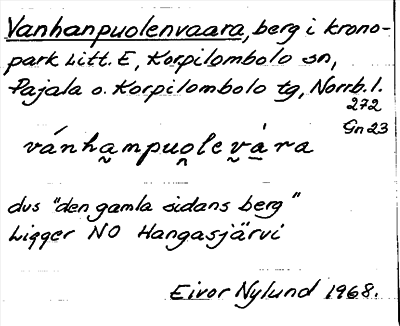 Vanhanpuolenvaara, berg i krono-
park Litt. E, Korpilombolo sn,
Pajala o. Korpilombolo tg, Norrb. l.
272
Gn 23
vánha̮npuo̮levá̮ra
dvs "den gamla sidans berg"
Ligger NO Hangasjärvi
Eivor Nylund 1968.